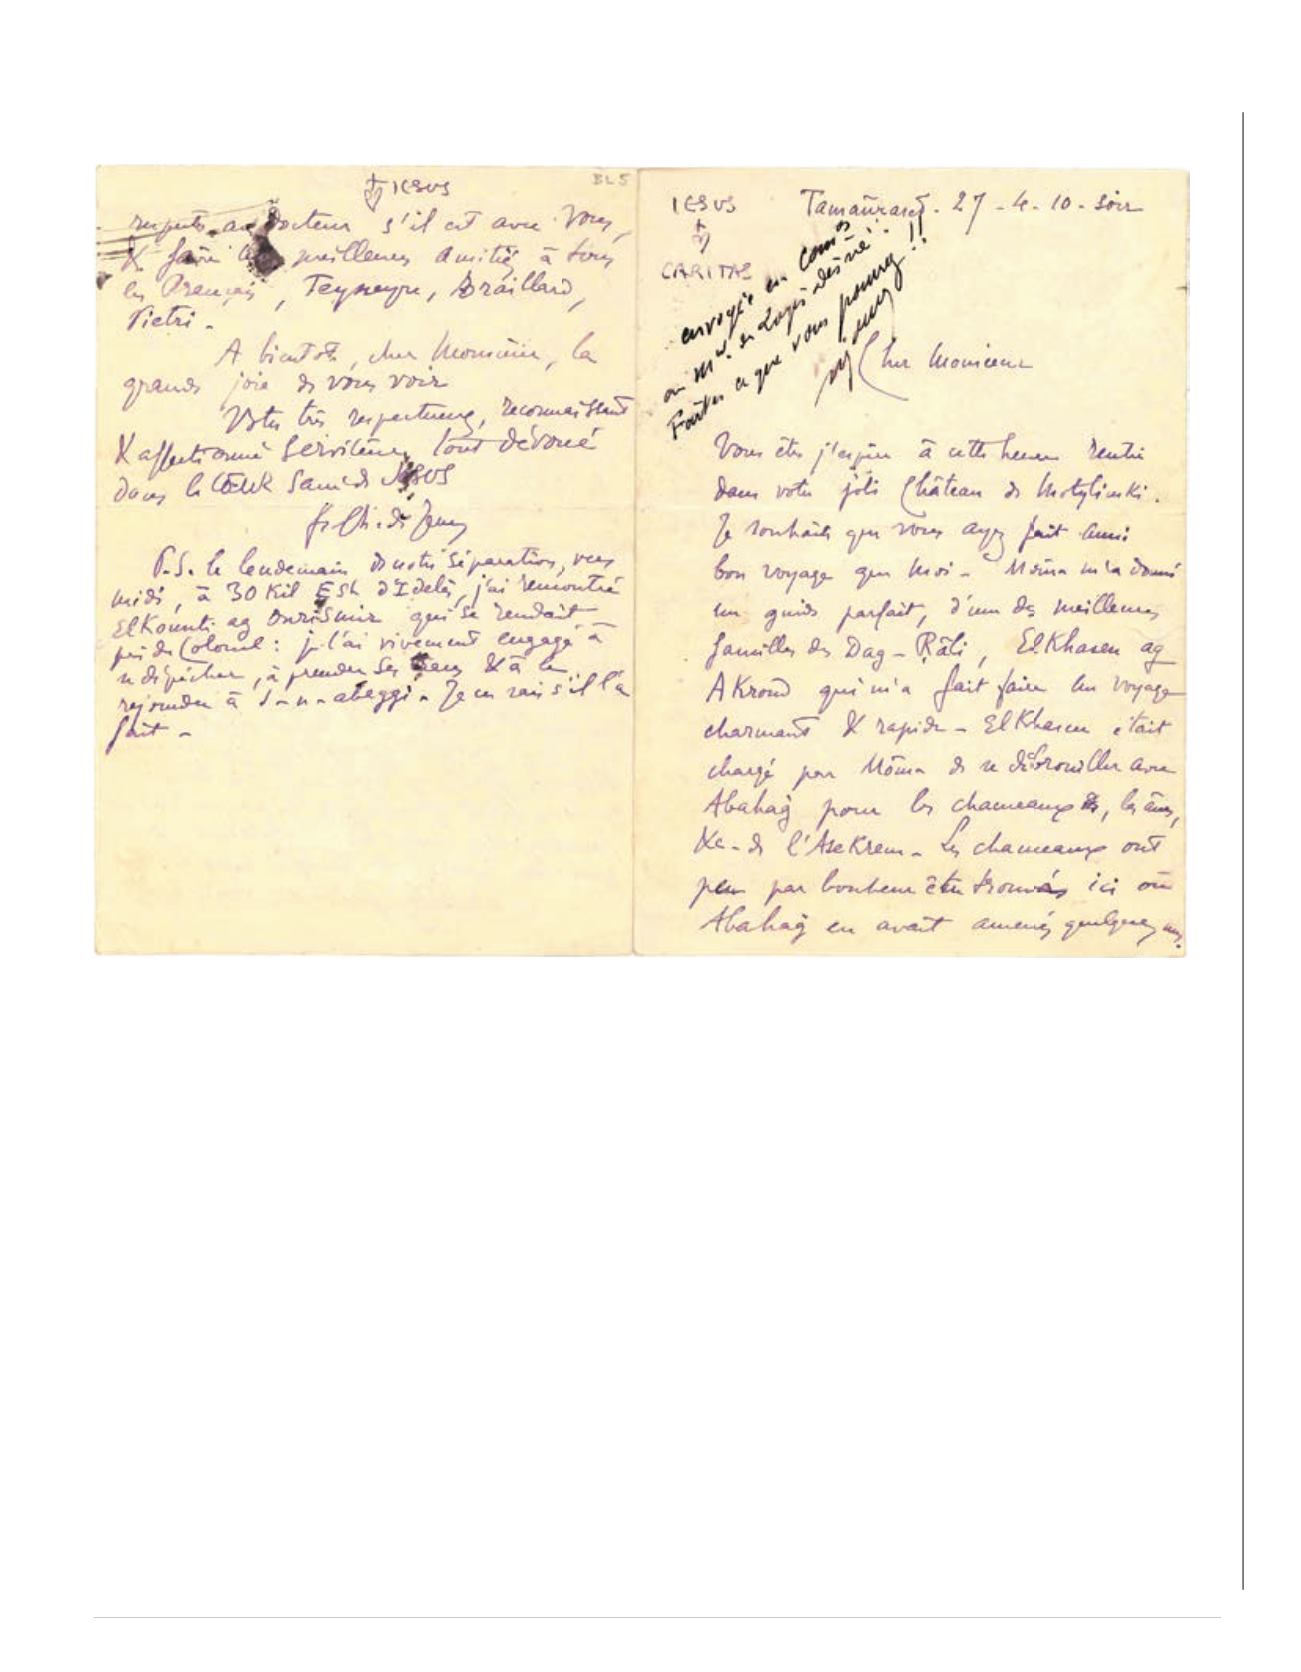 IESUS
CARITAS
Tamanrasset. 27 - 4 - 10 - soir
envoyée en
Faites ce que vous pourrez !!
Cher Monsieur
Vous êtes j'espère à cette heure rentré
dans votre joli Château de Motylinski.
Je souhaite que vous ayez fait aussi
bon voyage que moi - Moûsa m'a donné
un guide parfait, d'une des meilleures
familles des Dag-Râli, El Khasen ag
AKroud qui m'a fait faire un voyage
charmant & rapide - El Khasen était
chargé par Moûsa de se débrouiller avec
Abahaġ pour les chameaux, les ânes,
&c - de l'AseKrem - Les chameaux ont
peu par bonheur être trouvés ici où
Abahaġ en avait amenés quelques uns.
BL5
IESUS
respects au Docteur s'il est avec vous,
& faire les meilleures amitiés à tous
les Français, Teysseyre, Braillard,
Pietri -
A bientôt, cher Monsieur, la
grande joie de vous voir
Votre très respectueux, reconnaissant
& affectionné serviteur, tout dévoué
dans le CŒUR Sacré de JESUS
fr. Ch. de Jesus
P.S. le lendemain de notre séparation, vers
midi, à 30 Kil ESE d'Idelès, j'ai rencontré
El Kounti ag qui se rendait
près du Colonel : je l'ai vivement engagé à
se dépêcher, à prendre ses & à le
rejoindre à I-n-abeggi - Je ne sais s'il l'a
fait -